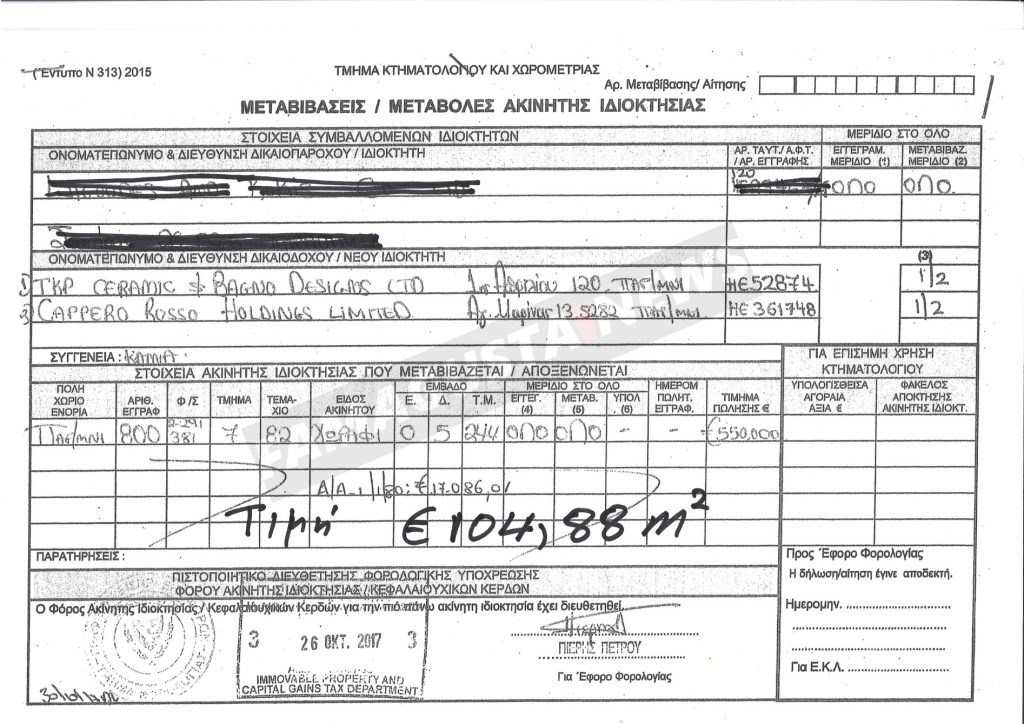 (Έντυπο Ν 313) 2015
ΤΜΗΜΑ ΚΤΗΜΑΤΟΛΟΓΙΟΥ ΚΑΙ ΧΩΡΟΜΕΤΡΙΑΣ
Αρ. Μεταβίβασης/ Αίτησης
ΜΕΤΑΒΙΒΑΣΕΙΣ / ΜΕΤΑΒΟΛΕΣ ΑΚΙΝΗΤΗΣ ΙΔΙΟΚΤΗΣΙΑΣ
ΣΤΟΙΧΕΙΑ ΣΥΜΒΑΛΛΟΜΕΝΩΝ ΙΔΙΟΚΤΗΤΩΝ
ΜΕΡΙΔΙΟ ΣΤΟ ΟΛΟ
ΟΝΟΜΑΤΕΠΩΝΥΜΟ & ΔΙΕΥΘΥΝΣΗ ΔΙΚΑΙΟΠΑΡΟΧΟΥ / ΙΔΙΟΚΤΗΤΗ
ΑΡ. ΤΑΥΤ./ Α.Φ.Τ. / ΑΡ. ΕΓΓΡΑΦΗΣ
ΕΓΓΕΓΡΑΜ. ΜΕΡΙΔΙΟ (1)
ΜΕΤΑΒΙΒΑΖ. ΜΕΡΙΔΙΟ (2)
120
ΟΛΟ ΟΛΟ.
ΟΝΟΜΑΤΕΠΩΝΥΜΟ & ΔΙΕΥΘΥΝΣΗ ΔΙΚΑΙΟΔΟΧΟΥ / ΝΕΟΥ ΙΔΙΟΚΤΗΤΗ
(3)
1) TKP CERAMIC & BAGNO DESIGNS LTD 1ης Απριλίου 120, ΠΑΡ/ΜΝΙ ΗΕ52874 1/2
CAPPERO ROSSO HOLDINGS LIMITED Αγ. Μαρίνας 13, 5282 ΠΑΡ/ΜΝΙ ΗΕ 361748 1/2
ΣΥΓΓΕΝΕΙΑ : ΚΑΜΙΑ
ΣΤΟΙΧΕΙΑ ΑΚΙΝΗΤΗΣ ΙΔΙΟΚΤΗΣΙΑΣ ΠΟΥ ΜΕΤΑΒΙΒΑΖΕΤΑΙ / ΑΠΟΞΕΝΩΝΕΤΑΙ
ΓΙΑ ΕΠΙΣΗΜΗ ΧΡΗΣΗ ΚΤΗΜΑΤΟΛΟΓΙΟΥ
ΠΟΛΗ ΧΩΡΙΟ ΕΝΟΡΙΑ
ΑΡΙΘ. ΕΓΓΡΑΦ
Φ /Σ
ΤΜΗΜΑ
ΤΕΜΑ- ΧΙΟ
ΕΙΔΟΣ ΑΚΙΝΗΤΟΥ
ΕΜΒΑΔΟ
Ε. Δ. Τ.Μ.
ΜΕΡΙΔΙΟ ΣΤΟ ΟΛΟ
ΕΓΓΕΓ. (4)
ΜΕΤΑΒ. (5)
ΥΠΟΛ. (6)
ΗΜΕΡΟΜ ΠΩΛΗΤ. ΕΓΓΡΑΦ.
ΤΙΜΗΜΑ ΠΩΛΗΣΗΣ €
ΥΠΟΛΟΓΙΣΘΕΙΣΑ ΑΓΟΡΑΙΑ ΑΞΙΑ €
ΦΑΚΕΛΟΣ ΑΠΟΚΤΗΣΗΣ ΑΚΙΝΗΤΗΣ ΙΔΙΟΚΤ.
ΠΑΡ/ΜΝΙ 800 2-291 381 7 82 ΧΩΡΑΦΙ 0 5 244 ΟΛΟ ΟΛΟ - - €550,000
Α/Α 1/1/80: €17.086,01
Τιμή €104,88 m²
ΠΑΡΑΤΗΡΗΣΕΙΣ :
ΠΙΣΤΟΠΟΙΗΤΙΚΟ ΔΙΕΥΘΕΤΗΣΗΣ ΦΟΡΟΛΟΓΙΚΗΣ ΥΠΟΧΡΕΩΣΗΣ
ΦΟΡΟΥ ΑΚΙΝΗΤΗΣ ΙΔΙΟΚΤΗΣΙΑΣ / ΚΕΦΑΛΑΙΟΥΧΙΚΩΝ ΚΕΡΔΩΝ
Ο Φόρος Ακίνητης Ιδιοκτησίας / Κεφαλαιουχικών Κερδών για την πιο πάνω ακίνητη ιδιοκτησία έχει διευθετηθεί.
3 26 ΟΚΤ. 2017 3
IMMOVABLE PROPERTY AND
CAPITAL GAINS TAX DEPARTMENT
ΠΙΕΡΗΣ ΠΕΤΡΟΥ
Για Έφορο Φορολογίας
Προς Έφορο Φορολογίας
Η δήλωση/αίτηση έγινε αποδεκτή.
Ημερομην.
Για Ε.Κ.Λ.
FAMAGUSTA.NEWS